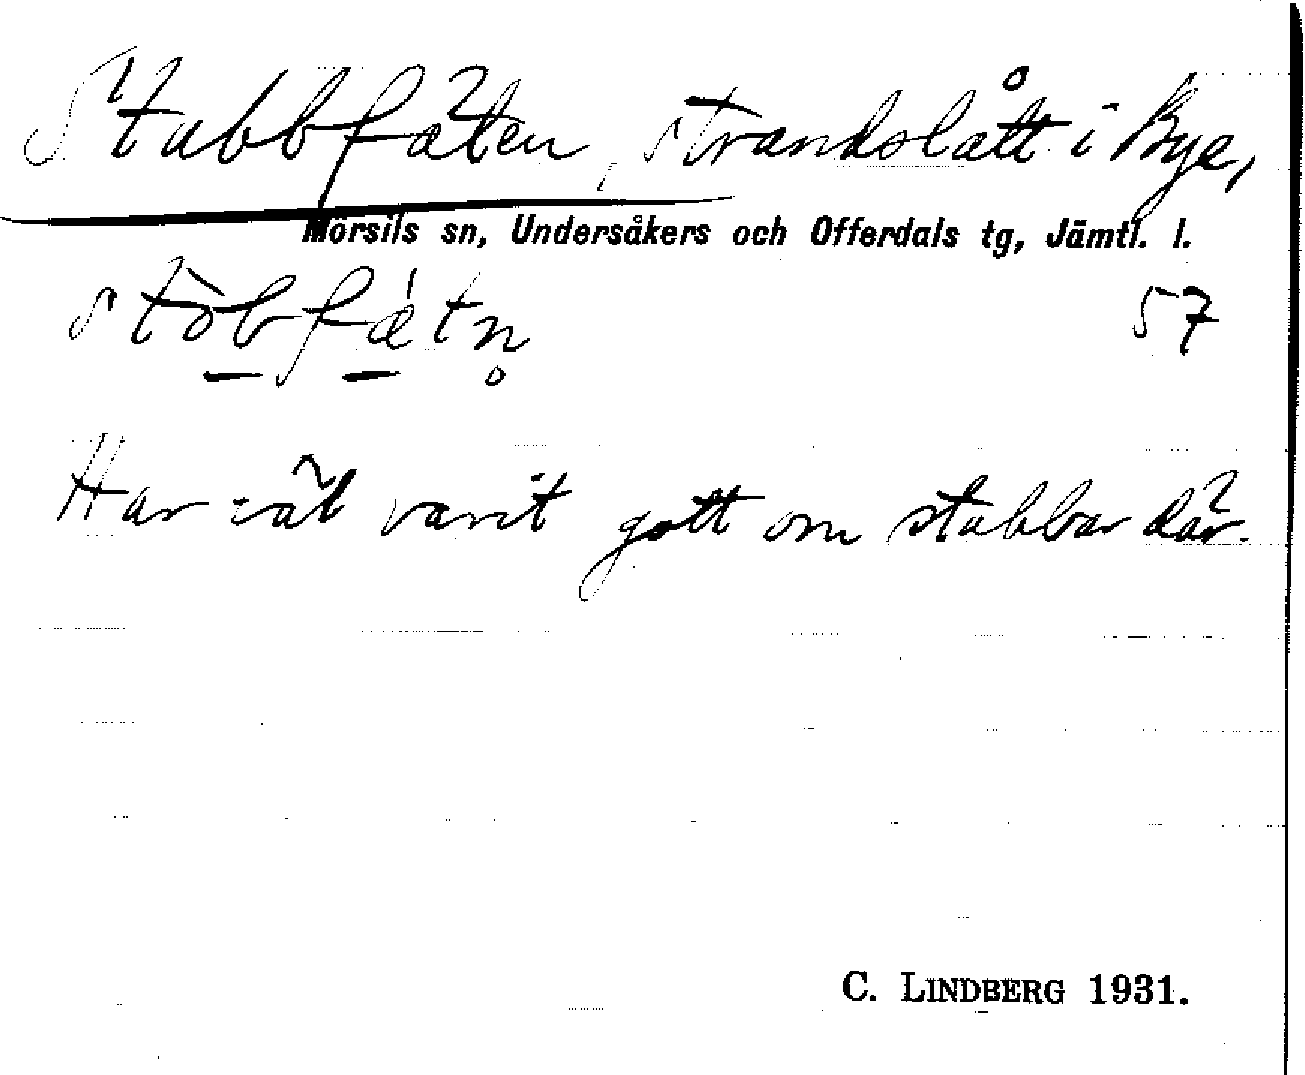 Stubbfäten, strandslått i Bye,
Mörsils sn, Undersåkers och Offerdals tg, Jämtl. l.
stòbfǽtn̥ 57
Har väl varit gott om stubbar där.
C. LINDBERG 1931.